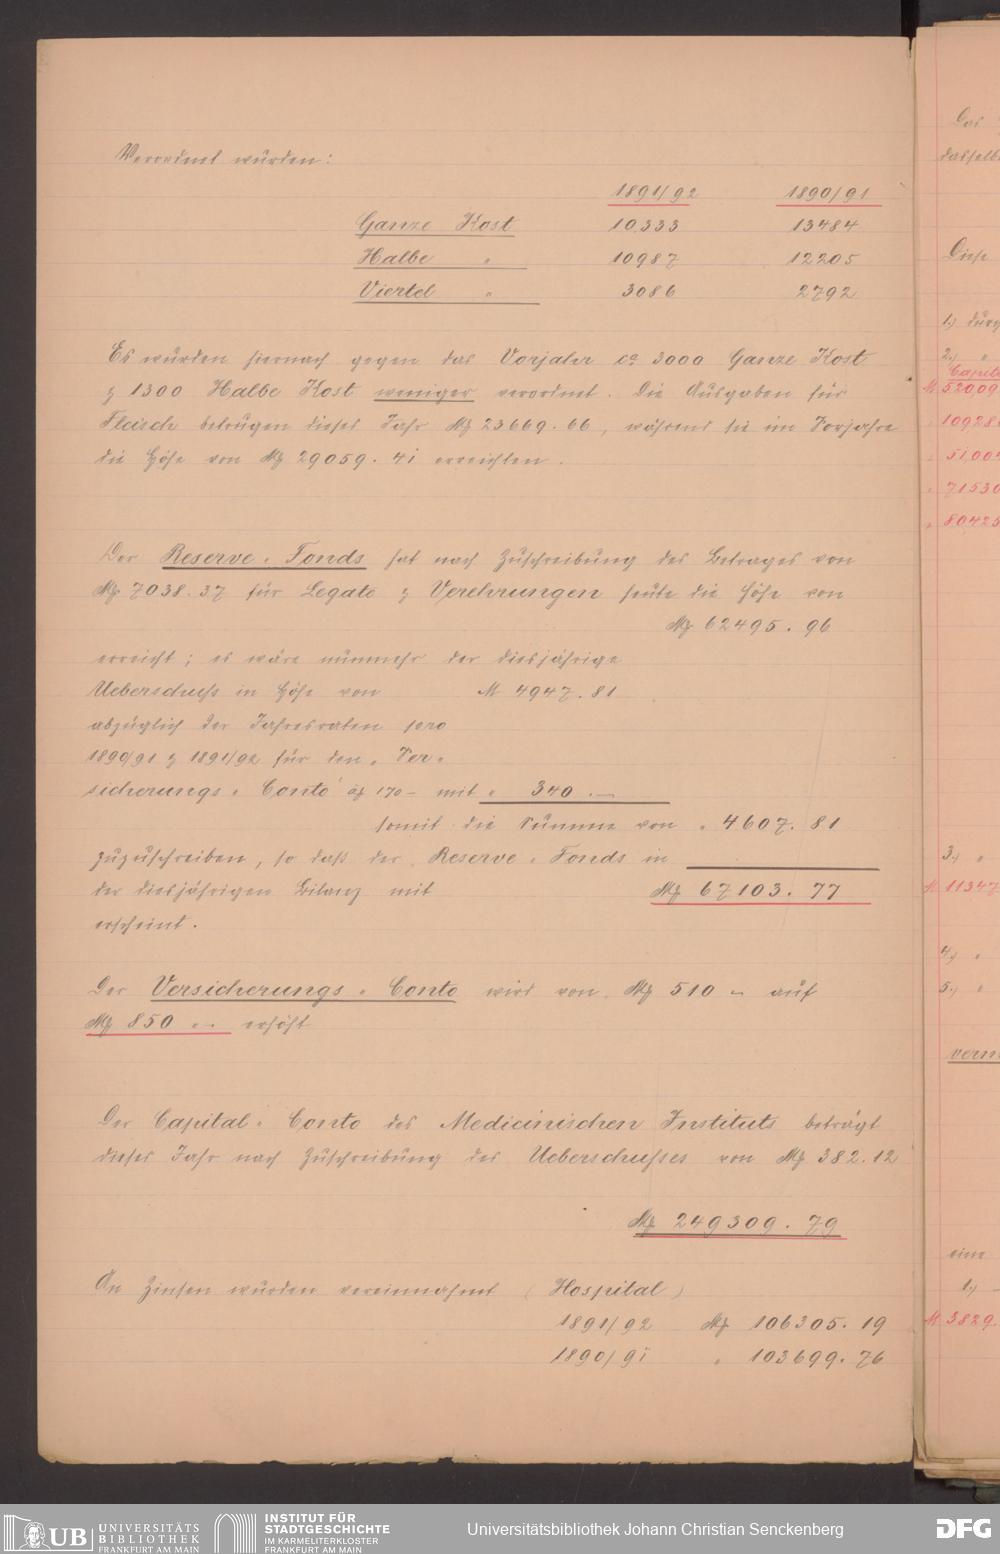 Verordnet wurden:
1891/92 1890/91
Ganze Kost 10333 13484
Halbe " 10987 12205
Viertel " 3086 2792
Es wurden hiernach gegen das Vorjahr ca 3000 Ganze Kost
& 1300 Halbe Kost weniger verordnet. Die Ausgaben für
Fleisch betrugen dieses Jahr M 23669.66, während sie im Vorjahre
die Höhe von M 29059.41 erreichten.
Der Reserve-Fonds hat nach Zuschreibung des Betrages von
M 7038.37 für Legate & Verehrungen heute die Höhe von
M 62495.96
erreicht; es wäre nunmehr der diesjährige
Ueberschuss in Höhe von M 4947.81
abzüglich der Jahresraten pro
1890/91 & 1891/92 für den "Ver-
sicherungs-Conto" à M 170– mit " 340.–
somit die Summe von " 4607.81
zuzuschreiben, so daß der Reserve-Fonds in
der diesjährigen Bilanz mit M 67103.77
erscheint.
Der Versicherungs-Conto wird von M 510 – auf
M 850 – erhöht
Der Capital-Conto des Medicinischen Instituts beträgt
dieses Jahr nach Zuschreibung des Ueberschusses von M 382.12
M 249309.79
An Zinsen wurden vereinnahmt (Hospital)
1891/92 M 106305.19
1890/91 " 103699.76
Das
dasselb
Diese
1.) dur
2.) "
Capit
M 52009
" 10928
" 51004
" 71530
" 80425
3.) "
M 11347
4.) "
5.) "
verm
eine
1.)
M 3829.
UB UNIVERSITÄTS
BIBLIOTHEK
FRANKFURT AM MAIN
INSTITUT FÜR
STADTGESCHICHTE
IM KARMELITERKLOSTER
FRANKFURT AM MAIN
Universitätsbibliothek Johann Christian Senckenberg
DFG